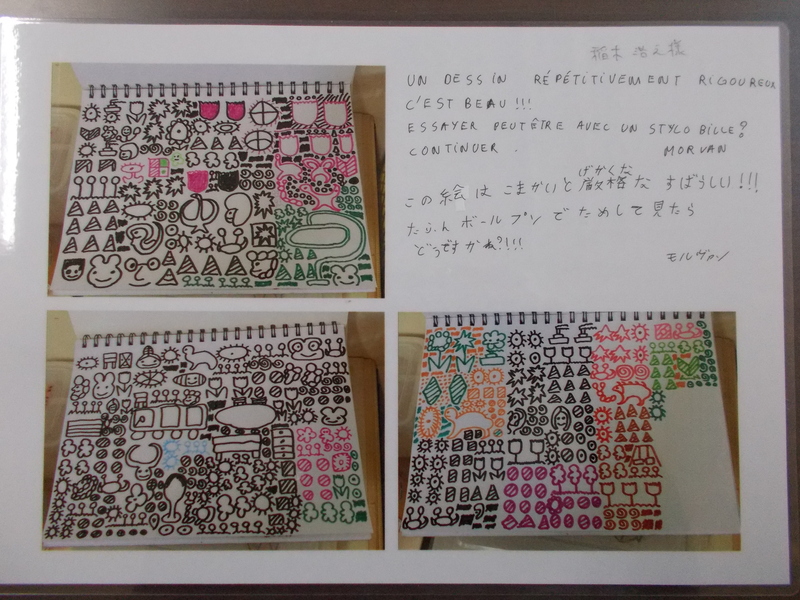 稲木 浩之様
UN DESSIN RÉPÉTITIVEMENT RIGOUREUX
C'EST BEAU!!!
ESSAYER PEUTÊTRE AVEC UN STYLO BILLE?
CONTINUER. MORVAN
げかくな
この絵は こまかいと厳格な すばうしい!!!
たぶん ボールプンでためして見たら
どうですかね?!!!
モルヴァン